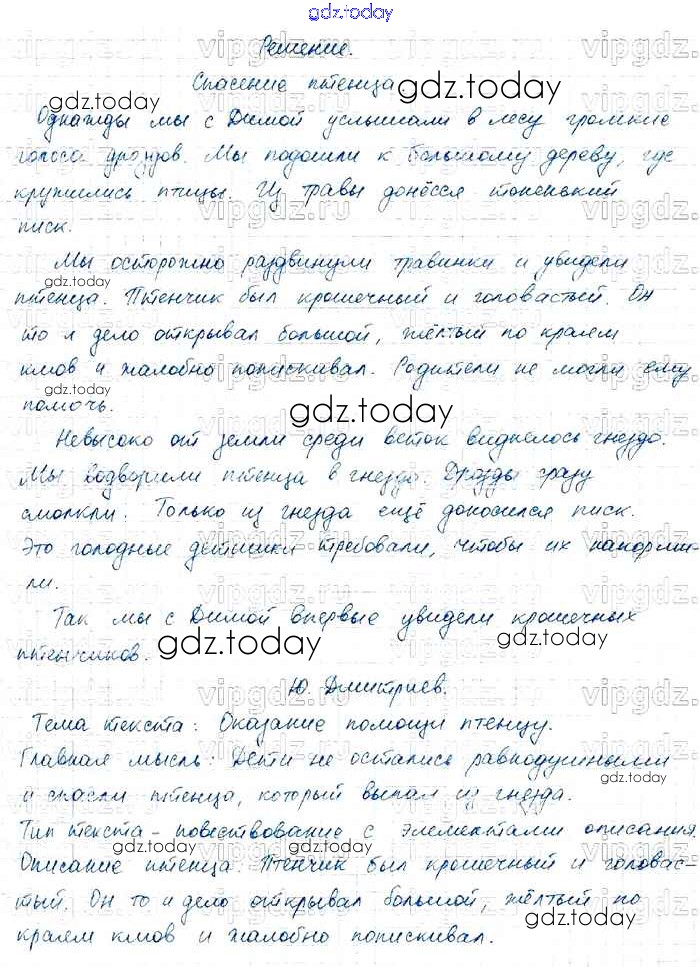 gdz.today
Решение.
Спасение птенца
Однажды мы с Димой услышали в лесу громкие
голоса дроздов. Мы подошли к большому дереву, где
кружились птицы. Из травы донёсся тоненький
писк.
Мы осторожно раздвинули травинки и увидели
птенца. Птенчик был крошечный и головастый. Он
то и дело открывал большой, жёлтый по краям
клюв и жалобно попискивал. Родители не могли ему
помочь.
Невысоко от земли среди веток виднелось гнездо.
Мы водворили птенца в гнездо. Дрозды сразу
смолкли. Только из гнезда ещё доносился писк.
Это голодные детишки требовали, чтобы их накорми-
ли.
Так мы с Димой впервые увидели крошечных
птенчиков.
Ю. Дмитриев.
Тема текста: Оказание помощи птенцу.
Главная мысль: Дети не остались равнодушными
и спасли птенца, который выпал из гнезда.
Тип текста - повествование с элементами описания.
Описание птенца. Птенчик был крошечный и головас-
тый. Он то и дело открывал большой, жёлтый по
краям клюв и жалобно попискивал.